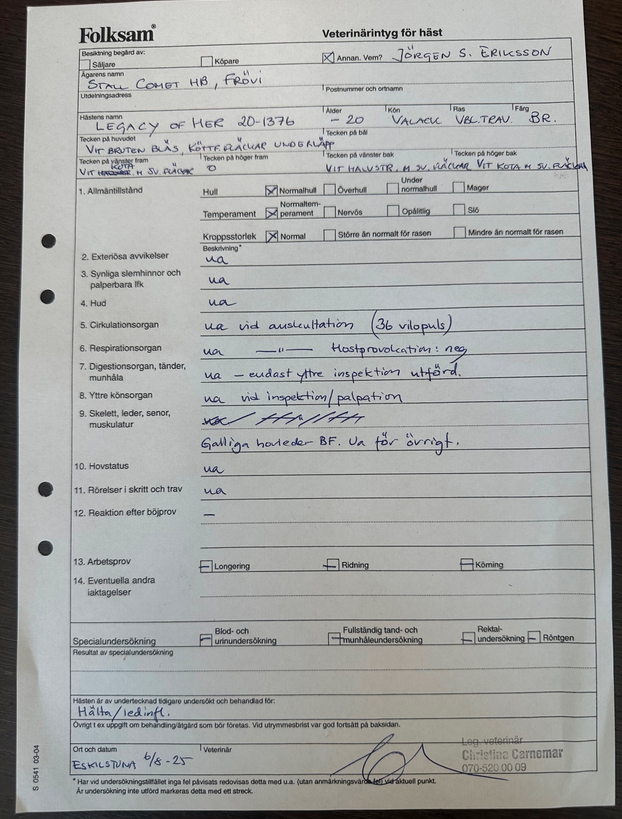 Folksam®
Veterinärintyg för häst
Besiktning begärd av:
Säljare
Köpare
Annan. Vem? JÖRGEN S. ERIKSSON
Ägarens namn
STALL COMET HB, FRÖVI
Utdelningsadress
Postnummer och ortnamn
Hästens namn Ålder Kön Ras Färg
LEGACY OF HER 20-1376 -20 VALACK VBL.TRAV. BR.
Tecken på huvudet Tecken på bål
VIT BRUTEN BLÄS, KÖTTF.FLÄCKAR UNDERLÄPP
Tecken på vänster fram Tecken på höger fram Tecken på vänster bak Tecken på höger bak
VIT KOTA M SV. FLÄCKAR 0 VIT HALVSTR. M SV. FLÄCKAR VIT KOTA M SV. FLÄCKAR
1. Allmäntillstånd Hull Normalhull Överhull Under normalhull Mager
Temperament Normaltemperament Nervös Opålitlig Slö
Kroppsstorlek Normal Större än normalt för rasen Mindre än normalt för rasen
Beskrivning*
2. Exteriösa avvikelser ua
3. Synliga slemhinnor och
palperbara lfk ua
4. Hud ua
5. Cirkulationsorgan ua vid auskultation (36 vilopuls)
6. Respirationsorgan ua —"— Hostprovokation: neg
7. Digestionsorgan, tänder,
munhåla ua – endast yttre inspektion utförd.
8. Yttre könsorgan ua vid inspektion/palpation
9. Skelett, leder, senor,
muskulatur
Galliga hovleder BF. Ua för övrigt.
10. Hovstatus ua
11. Rörelser i skritt och trav ua
12. Reaktion efter böjprov –
13. Arbetsprov Longering Ridning Körning
14. Eventuella andra
iakttagelser
Specialundersökning Blod- och urinundersökning Fullständig tand- och munhåleundersökning Rektalundersökning Röntgen
Resultat av specialundersökning
Hästen är av undertecknad tidigare undersökt och behandlad för:
Hälta/ledinfl.
Övrigt t ex uppgift om behandling/åtgärd som bör företas. Vid utrymmesbrist var god fortsätt på baksidan.
Ort och datum Veterinär
ESKILSTUNA 6/8-25
Leg. veterinär
Christina Carnemar
070-520 00 09
* Har vid undersökningstillfället inga fel påvisats redovisas detta med u.a. (utan anmärkningsvärda fel) vid aktuell punkt.
Är undersökning inte utförd markeras detta med ett streck.
S 0541 03-04